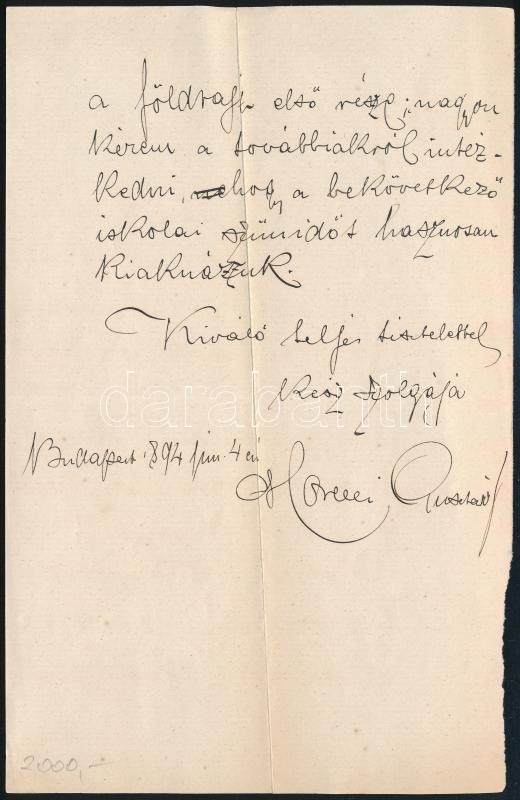 a földrajz első része; nagyon
kérem a továbbiakról intéz-
kedni, hogy a bekövetkező
iskolai szünidőt hasznosan
kiaknázzuk.
Kiváló teljes tisztelettel
kész szolgája
Budapest 1894 jun. 4 én
Moretti Gusztáv
darabanth
2000,-